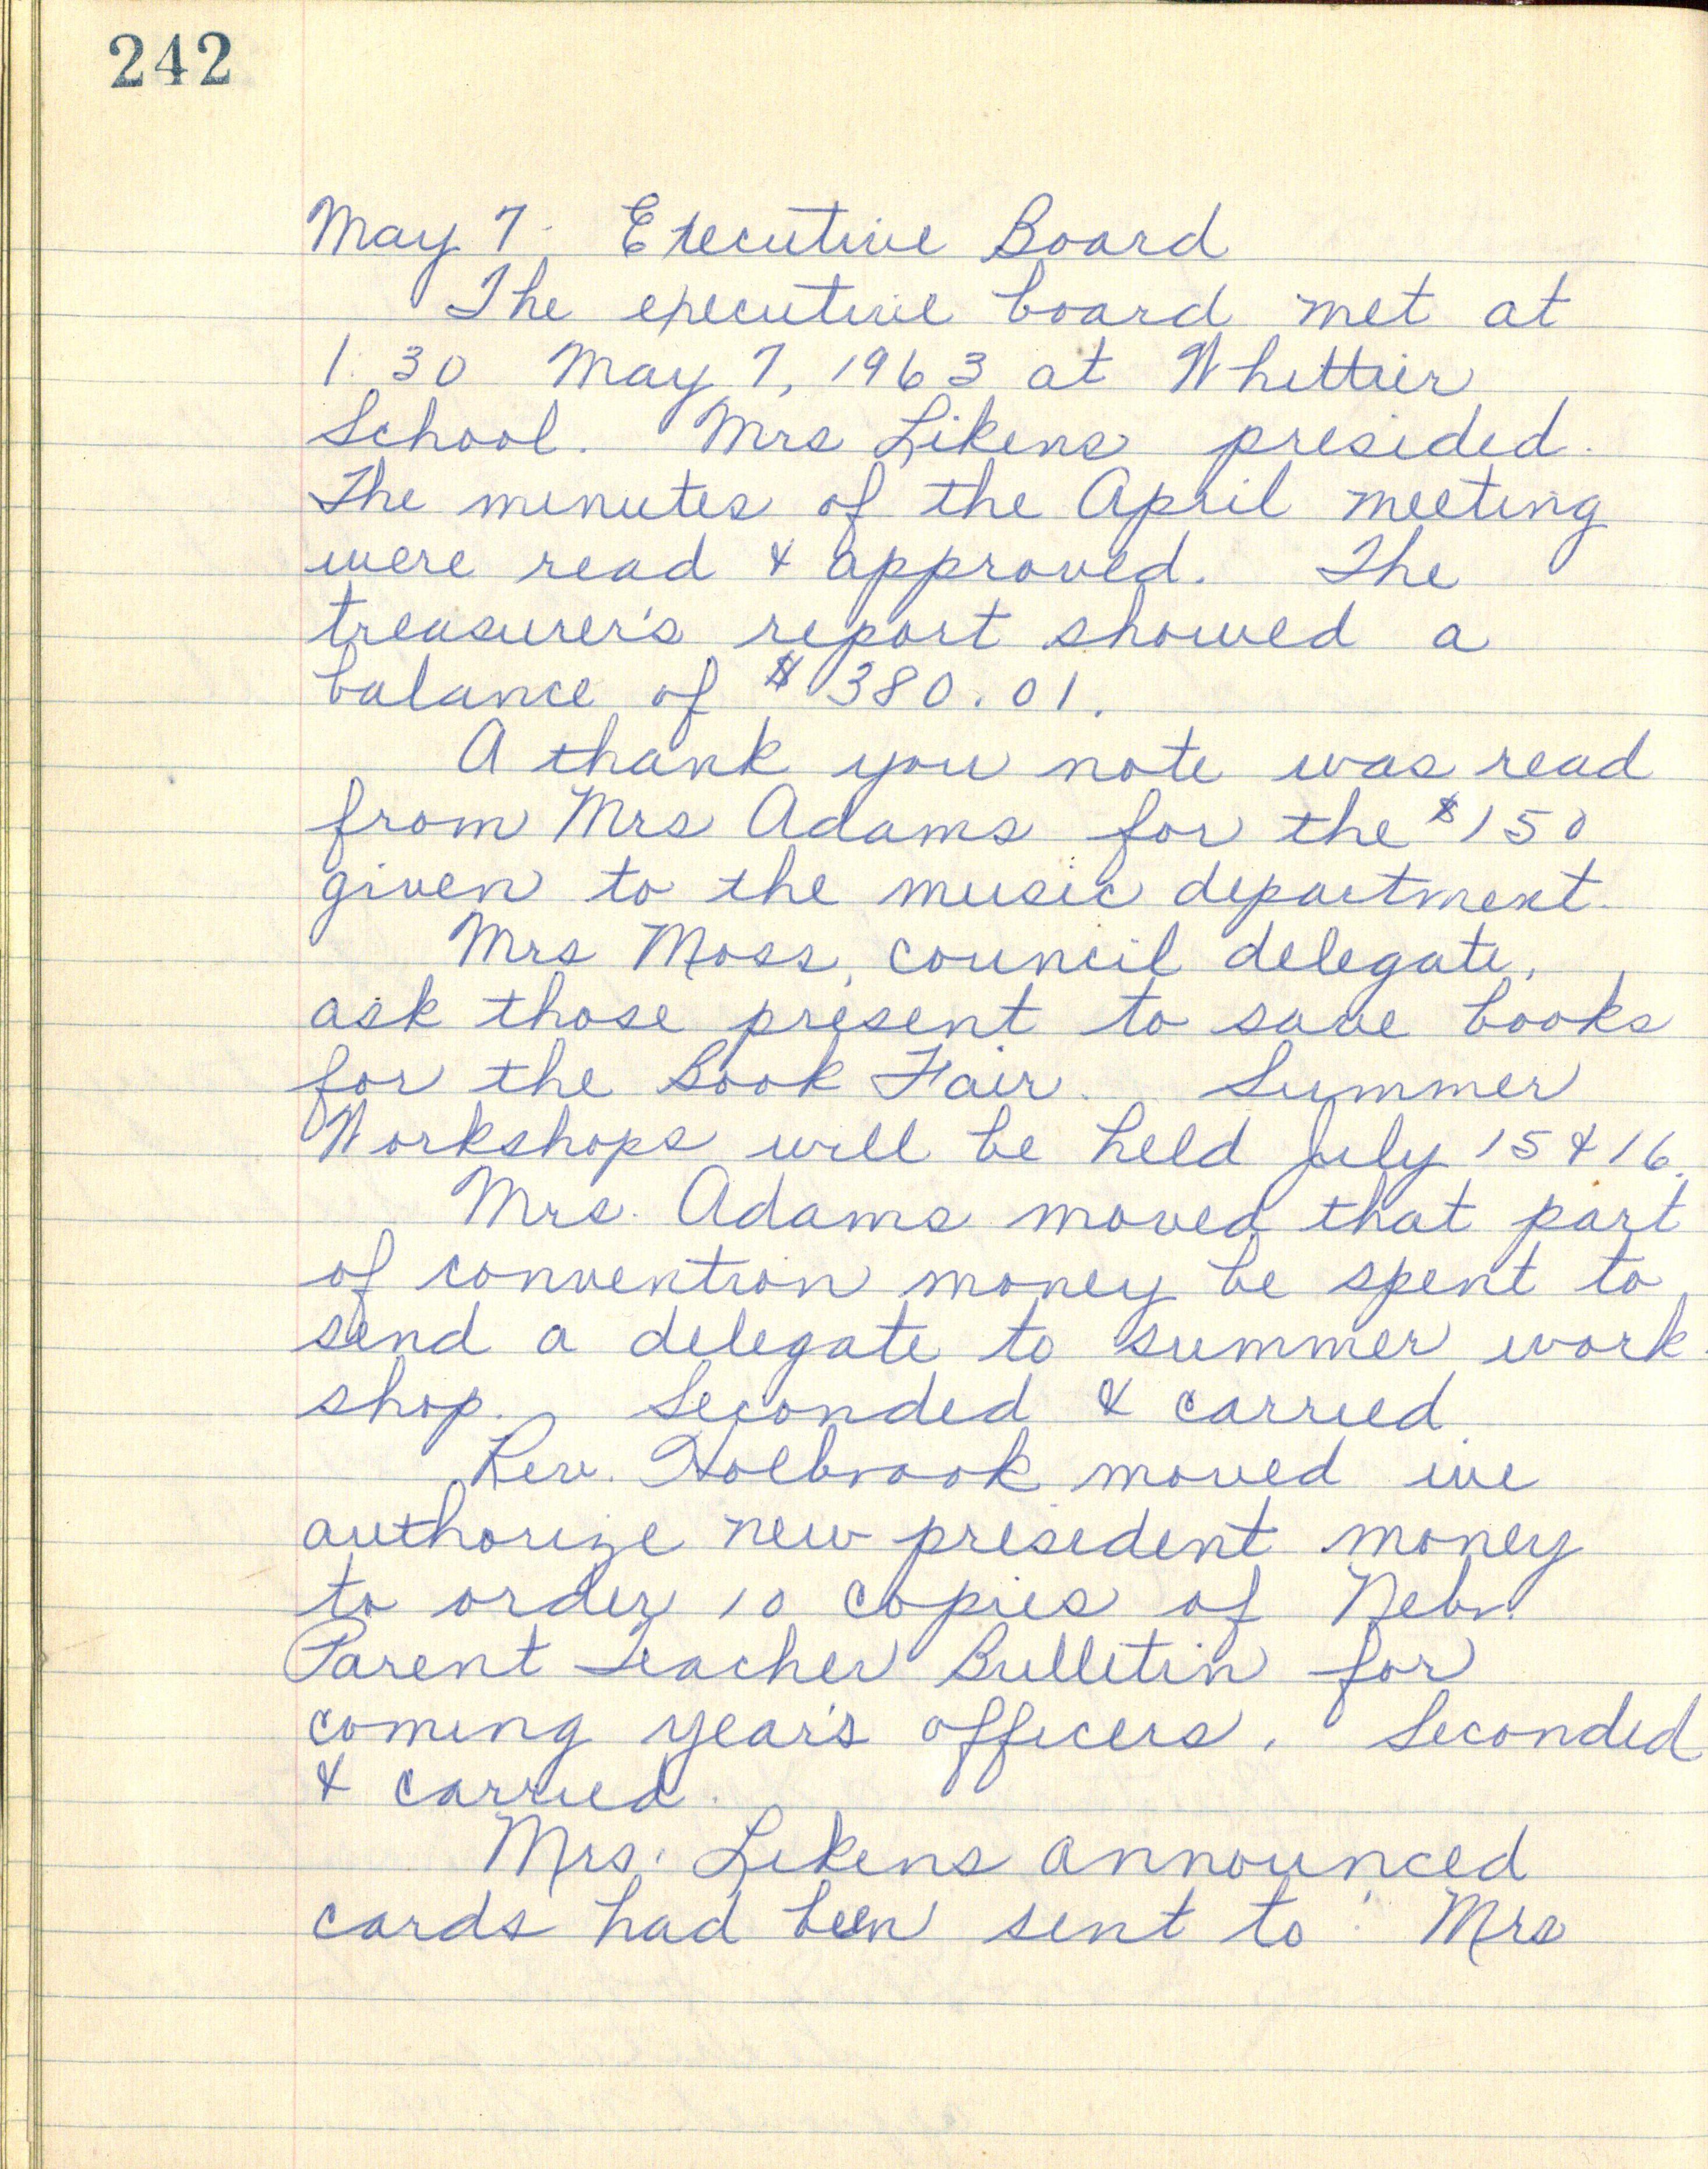 242
May 7. Executive Board
The executive board met at
1:30 May 7, 1963 at Whittier
School. Mrs Likens presided.
The minutes of the April meeting
were read & approved. The
treasurer's report showed a
balance of $380.01.
A thank you note was read
from Mrs Adams for the $150
given to the music department.
Mrs Moss, council delegate,
ask those present to save books
for the Book Fair. Summer
Workshops will be held July 15 & 16.
Mrs. Adams moved that part
of convention money be spent to
send a delegate to summer work-
shop. Seconded & carried.
Rev. Holbrook moved we
authorize new president money
to order 10 copies of Nebr.
Parent Teacher Bulletin for
coming year's officers. Seconded
& carried.
Mrs. Likens announced
cards had been sent to: Mrs